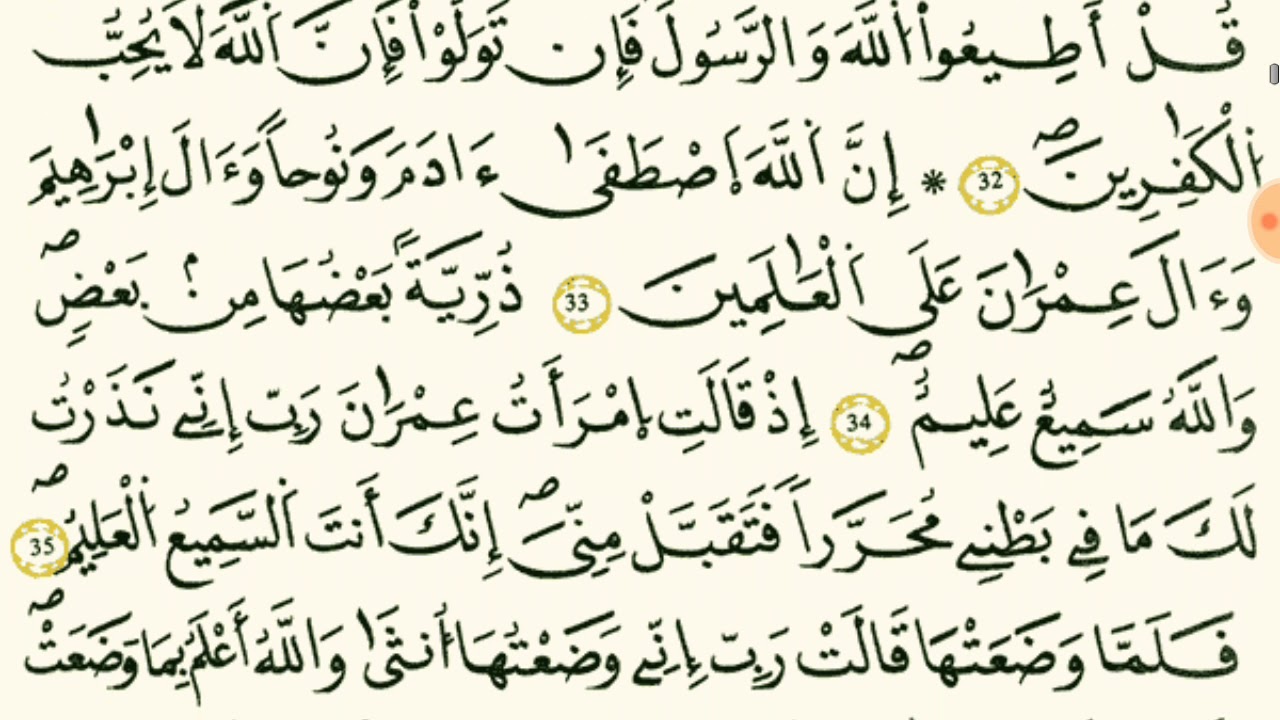 قُلْ أَطِيعُوا۟ اُ۬للَّهَ وَالرَّسُولَ فَإِن تَوَلَّوْا۟ فَإِنَّ اَ۬للَّهَ لَا يُحِبُّ
اُ۬لْكَٰفِرِينَۖ 32 * إِنَّ اَ۬للَّهَ اَ۪صْطَفَىٰ ءَادَمَ وَنُوحاٗ وَءَالَ إِبْرَٰهِيمَ
وَءَالَ عِمْرَٰنَ عَلَى اَ۬لْعَٰلَمِينَ 33 ذُرِّيَّةَۢ بَعْضُهَا مِنۢ بَعْضٖۖ
وَاللَّهُ سَمِيعٌ عَلِيمٌۖ 34 إِذْ قَالَتِ اِ۪مْرَأَتُ عِمْرَٰنَ رَبِّ إِنِّے نَذَرْتُ
لَكَ مَا فِے بَطْنِے مُحَرَّراٗ فَتَقَبَّلْ مِنِّيَۖ إِنَّكَ أَنتَ اَ۬لسَّمِيعُ اُ۬لْعَلِيمُۖ 35
فَلَمَّا وَضَعَتْهَا قَالَتْ رَبِّ إِنِّے وَضَعْتُهَا أُنثَىٰ وَاللَّهُ أَعْلَمُ بِمَا وَضَعَتْۖ